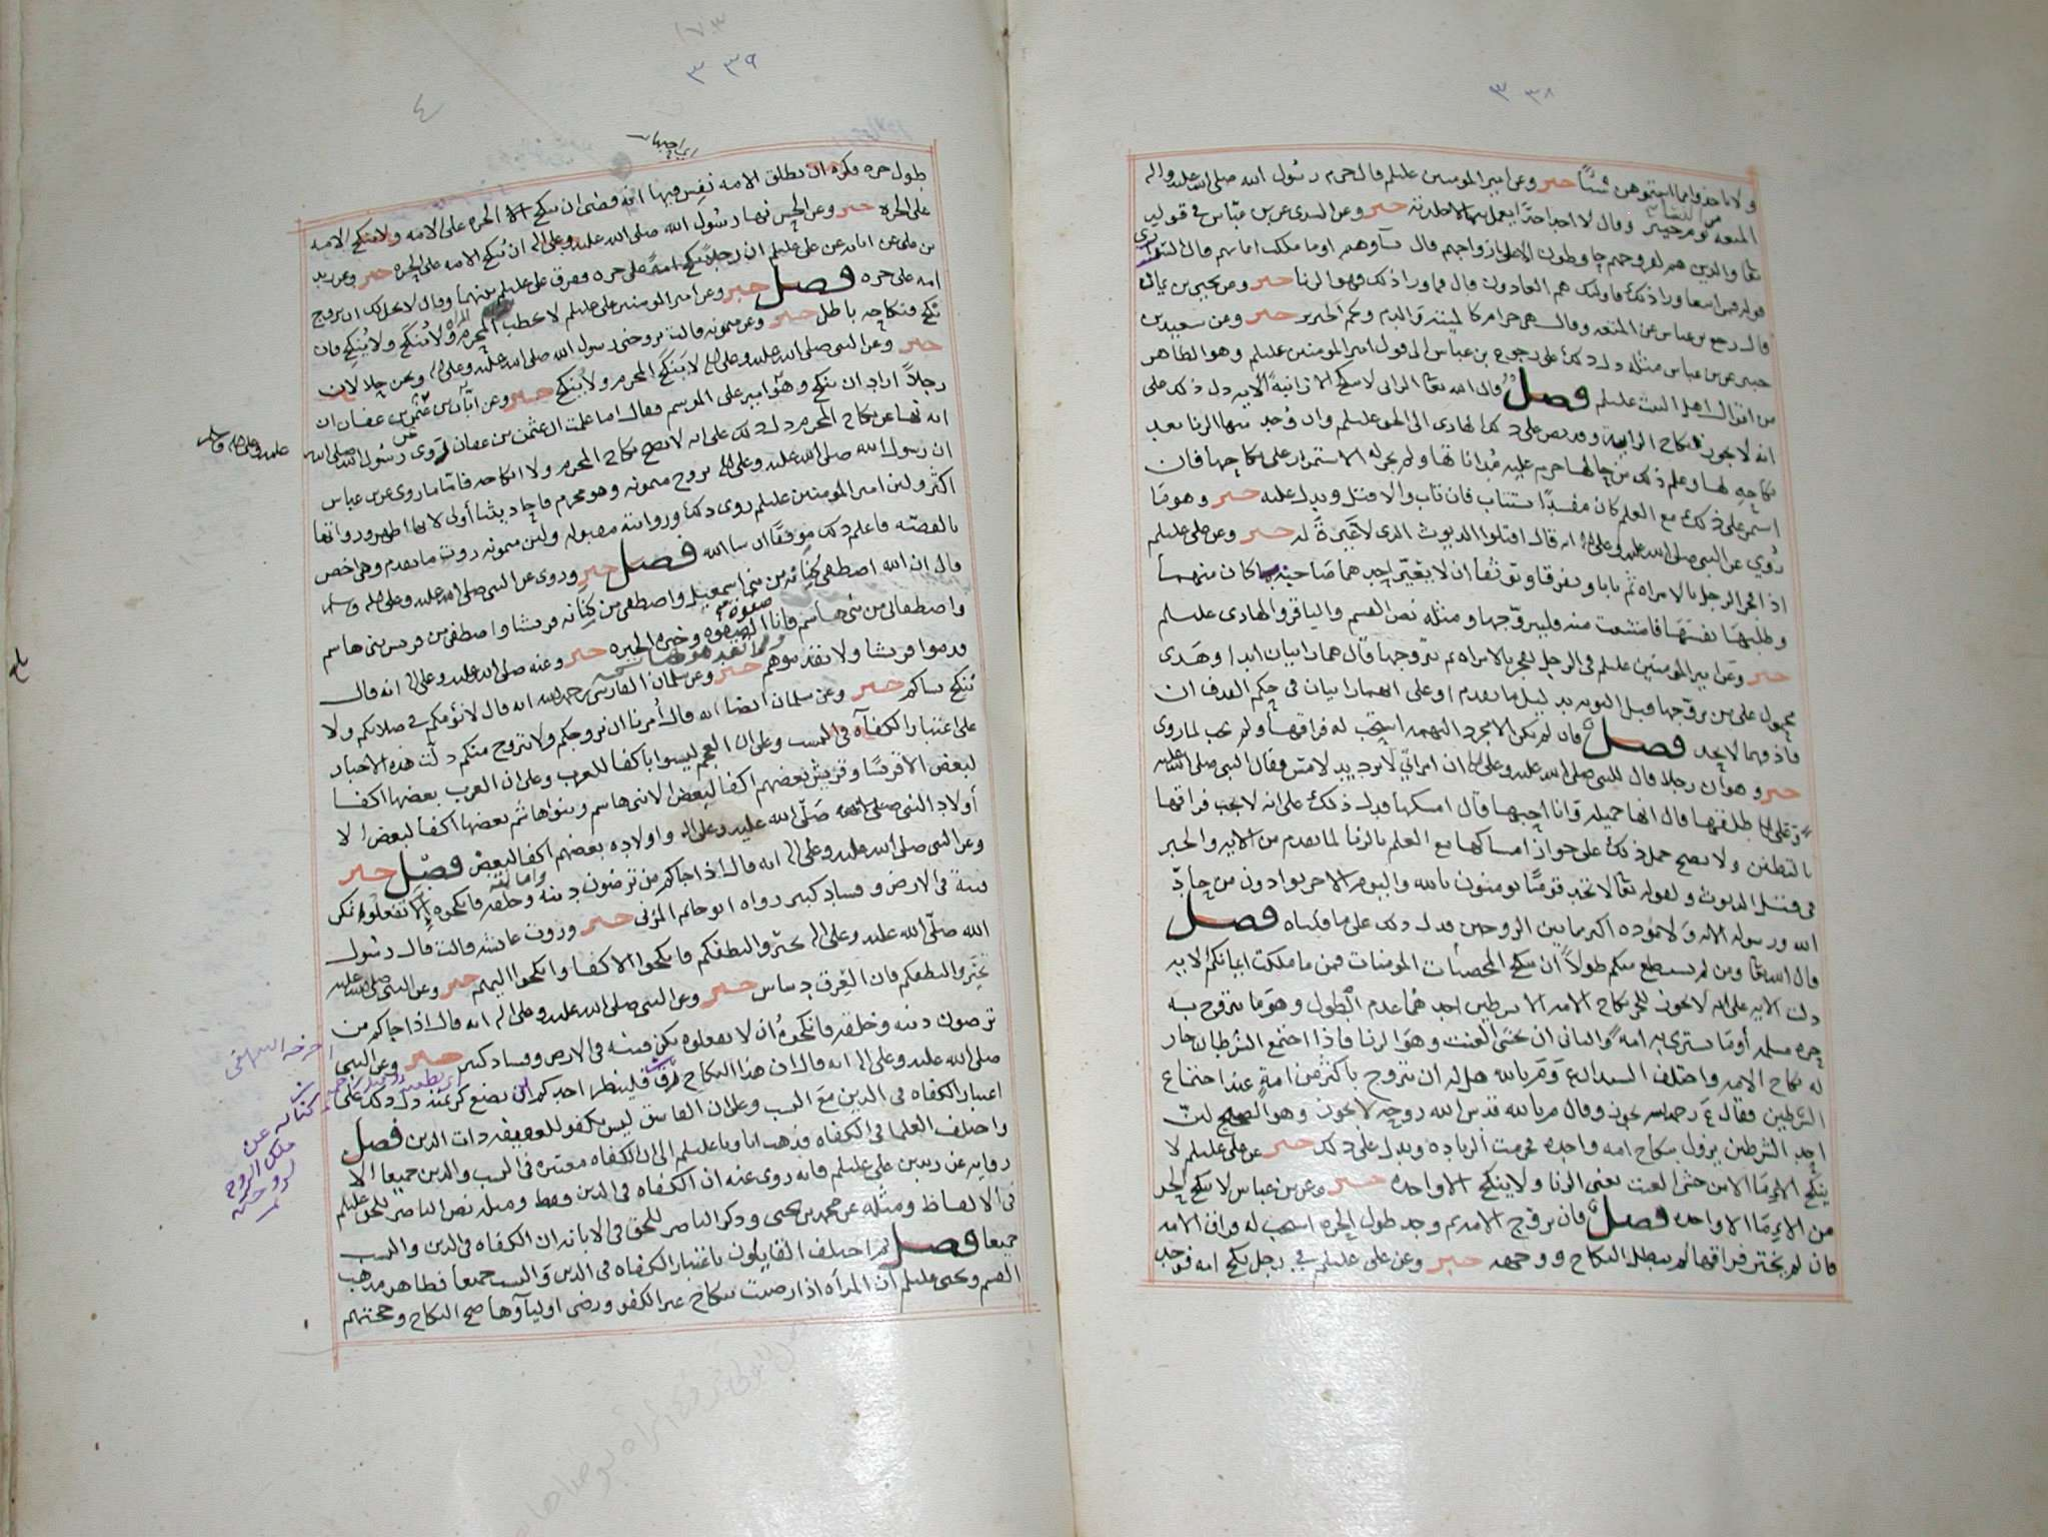 ٣٣٨
ولا تاخذوا مما اتيتموهن شيئاً خبر وعن امير المومنين عليلم قال حرم رسول الله صلى الله عليه واله
المتعه من النساء يوم خيبر وقال لا اجد احدا يعمل بها الا جلدته خبر وعن السدى عن بن عباس في قوله
تعا والذين هم لفروجهم حافظون الا على ازواجهم قال نساوهم او ما ملكت ايمانهم قال
قوله فمن ابتغا ورا ذلك فاولئك هم العادون قال فما ورا ذلك فهو الزنا خبر وعن يحيى بن
قال رجع بن عباس عن المتعه وقال هي حرام كالميته والدم ولحم الخنزير خبر وعن سعيد بن
جبير عن بن عباس مثله دل ذلك على رجوع بن عباس الى قول امير المومنين عليلم وهو الظاهر
من اقوال اهل البيت عليلم فصل وقال الله تعا الزاني لا ينكح الا زانية الايه دل ذلك على
انه لا يجوز نكاح الزانيه وقد نص على ذلك الهادى الى الحق عليلم وان وجد منها الزنا بعد
نكاحه لها وعلم ذلك من حالها حرم عليه مداناتها ولم يجز له الاستمرار على نكاحها فان
استمر على ذلك مع العلم كان مفسدًا يستتاب فان تاب والا قتل ويدل عليه خبر وهو ما
رُوي عن النبي صلى الله عليه وعلى اله انه قال اقتلوا الديوث الذى لا غَيرةً له خبر وعن على عليلم
اذا فجر الرجل بالامراه ثم تابا وتفرقا وتوثقا ان لا يغيّر احدهما صاحبه بما كان منهما
وطلبها نفسَهَا فامتنعت منه فليتزوّجها ومثله نص القسم والباقر والهادى عليلم
خبر وعن امير المومنين عليلم في الرجل يفجر بالامراه ثم يتزوجها قال هما زانيان ابدا وهذى
محمول على من تزوّجها قبل التوبه بدليل ما تقدم او على انهما زانيان في حكم القذف ان
قاذفهما لا يحد فصل فان لم يكن الا مجرد التهمه استحب له فراقها ولم يجب لما روى
خبر وهو ان رجلا قال للنبي صلى الله عليه وعلى اله ان امراتي لا ترد يد لامس فقال النبي صلى الله عليه
وعلى اله طلقها قال انها جميله وانا احبها قال امسكها فدل ذلك على انه لا يجب فراقها
بالتظنن ولا يصح حمل ذلك على جواز امساكها مع العلم بالزنا لما تقدم من الايه والخبر
في قتل الديوث ولقوله تعا لا تجد قومًا يومنون بالله واليوم الاخر يوادون من حادّ
الله ورسوله الايه ولا مَوَدّه اكبر مما بين الزوجين فدل ذلك على ما قلناه فصل
قال الله تعا ومن لم يستطع منكم طولاً ان ينكح المحصنات المومنات فمن ما ملكت ايمانكم الايه
دلت الايه على انه لا يجوز للحر نكاح الامه الا بشرطين احدهما عدم الطول وهو ما يتزوج به
حره مسلمه أو ما يشترى به امه والثاني ان يخشى العنت وهو الزنا فاذا اجتمع الشرطان جاز
له نكاح الامه واختلف السيدان ع وم بالله هل له ان يتزوج باكثر من امةٍ عند اجتماع
الشرطين فقال ع رحمه الله يجوز وقال م بالله قدس الله روحه لا يجوز وهو الصحيح لان
احد الشرطين يزول بنكاح امه واحده فحرمت الزياده ويدل على ذلك خبر عن على عليلم لا
ينكح الاِمَا الا من خشى العنت يعنى الزنا ولا ينكح الا واحده خبر وعن بن عباس لا ينكح الحر
من الاِمَا الا واحده فصل فان تزوج الامه ثم وجد طول الحره استحب له فراق الامه
فان لم يختر فراقها لم يبطل النكاح ووجهه خبر وعن على عليلم في رجل نكح امه فوجد
٣٣٩
٤
طول حره فكره ان يطلق الامه نفِس فيها انه قضى ان ينكح الحره على الامه ولا ينكح الامه
على الحره خبر وعن الحسن نها رسول الله صلى الله عليه وعلى اله ان تُنكح الامه على الحره خبر وعن زيد
بن على عن ابائه عن على عليلم ان رجلاً نكح امه على حره ففرق على عليلم بينهما وقال لا يحل لك ان تزوج
امه على حره فصل خبر وعن امير المومنين على عليلم لا يخطب المحرم ولا يَنكح ولا يُنكح فان
نكح فنكاحه باطل خبر وعن ميمونه قالت تزوجنى رسول الله صلى الله عليه وعلى اله ونحن حلالان
خبر وعن النبى صلى الله عليه وعلى اله لا يَنكح المحرم ولا يُنكح خبر وعن ابان بن عثمن بن عفان ان
رجلاً اراد ان ينكح وهو امير على الموسم فقال اما علمت ان عثمن بن عفان روى عن رسول الله صلى الله
عليه وعلى اله وسلم
انه نها عن نكاح المحرم دل ذلك على انه لا يصح نكاح المحرم ولا انكاحه فامّا ما روى عن بن عباس
ان رسول الله صلى الله عليه وعلى اله تزوج ميمونه وهو محرم فاحاديثنا أولى لانها اظهر ورواتها
أكثر ولان امير المومنين عليلم روى ذلك وروايته مقبوله ولان ميمونه روت ما تقدم وهى اخص
بالقصّه فاعلم ذلك موفقا ان شا الله فصل خبر وروى عن النبى صلى الله عليه وعلى اله وسلم
قال ان الله اصطفى كِنانه من بنى اسمعيل واصطفى من كِنانه قريشا واصطفى من قريش بنى هاشم
واصطفانى من بنى هاشم فانا صفوة الصفوه وخيره الخيره خبر وعنه صلى الله عليه وعلى اله انه قال
قدموا قريشا ولا تقدموهم خبر وعن سلمان الفارسى رحمه الله انه قال لا نؤمكم في صلاتكم ولا
نُنكح نساكم خبر وعن سلمان ايضا انه قال اُمرنا ان نزوجكم ولا نتزوج منكم دلّت هذه الاخبار
على اعتبار الكفآه في النسب وعلى ان العجم ليسوا باكفا للعرب وعلى ان العرب بعضها اكفا
لبعض الا قريشًا وقريش بعضهم اكفا لبعض الا بنى هاشم وبنوا هاشم بعضها اكفا لبعض الا
أولاد النبى صلى الله عليه وعلى اله واولاده بعضهم اكفا لبعض فصل خبر
وعن النبى صلى الله عليه وعلى اله انه قال اذا جاكم من ترضون دينه وخلقه وامانته فانكحوه إلا تفعلوه تكن
فتنة فى الارض وفساد كبير رواه ابو حاتم المزنى خبر وروت عائشه قالت قال رسول
الله صلى الله عليه وعلى اله تخيّروا لنطفكم فانكحوا الاكفا وانكحوا اليهم خبر وعن النبى صلى الله عليه
تخيّروا لنطفكم فان العِرق دساس خبر وعن النبى صلى الله عليه وعلى اله انه قال اذا جاكم من
ترضون دينه وخلقه فانكحوهُ ان لا تفعلوه تكن فتنه فى الارض وفساد كبير خبر وعن النبى
صلى الله عليه وعلى اله انه قال ان هذا النكاح رق فلينظر احدكم اين يضع كريمته دل ذلك على
اعتبار الكفاه فى الدين مع النسب وعلى ان الفاسق ليس بكفو للعفيفه ذات الدين فصل
واختلف العلما فى الكفاه فذهب اباونا عليلم الى ان الكفاه معتبره فى النسب والدين جميعا الا
روايه عن زيد بن على عليلم فانه روى عنه ان الكفاه فى الدين فقط ومثله نص الناصر للحق عليلم
فى الالفاظ ومثله عن محمد بن يحيى وذكر الناصر للحق فى الابانه ان الكفاه فى الدين والنسب
جميعا فصل ثم اختلف القايلون باعتبار الكفاه فى الدين والنسب جميعا فظاهر مذهب
القسم ويحيى عليلم أن المرأه اذا رضيت بنكاح غير الكفو ورضى اولياؤها صح النكاح وحجتهم